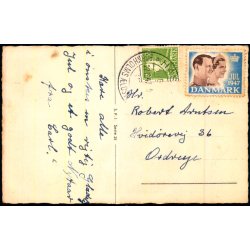 Kære alle
i ønskes en rigtig glædelig
Jul og et godt Nytaar
fra Carl.
L.F.I. Serie 21
JUL
1947
DANMARK
Hr.
Robert Arntsen
Hvidörevej 36
Ordrup